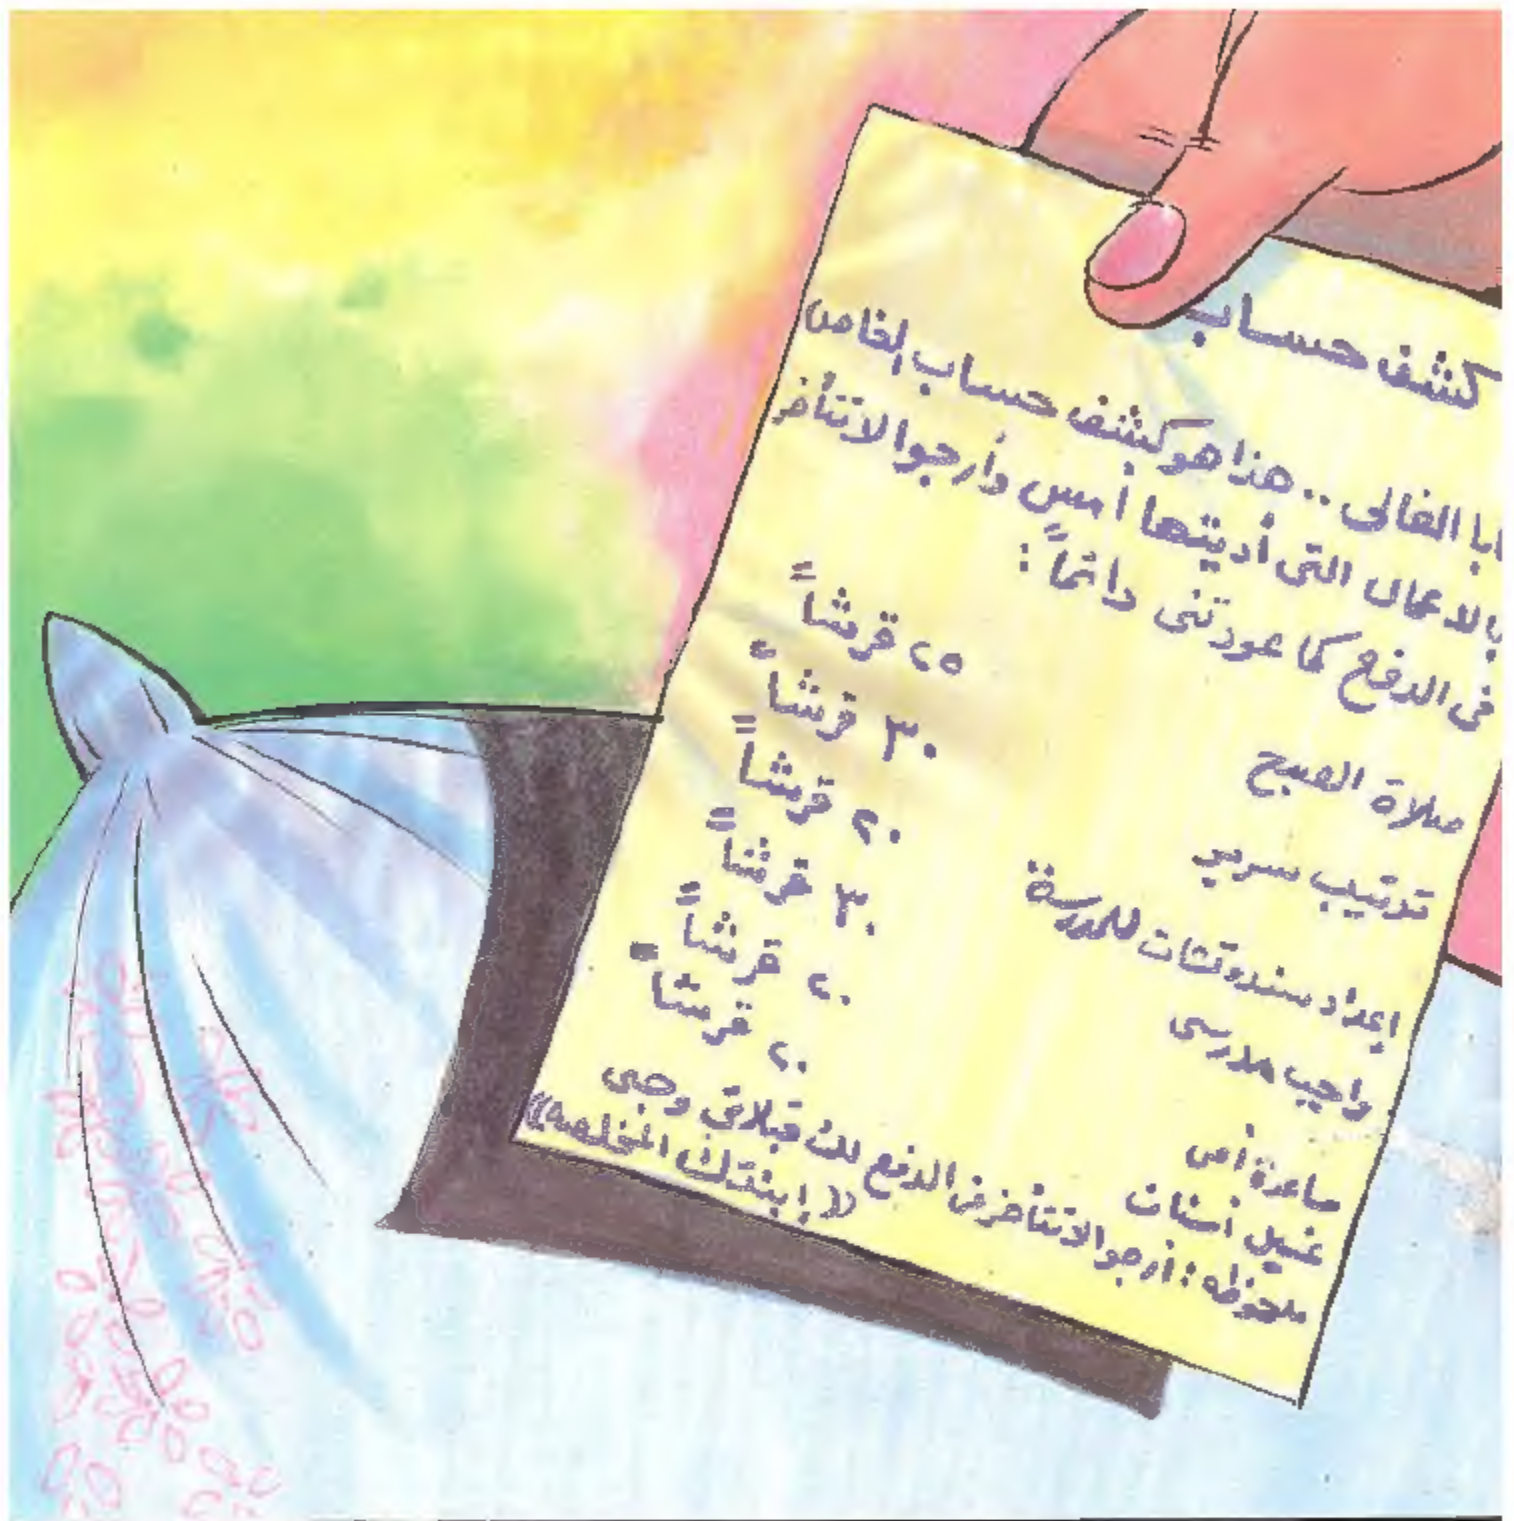 كشف حساب
بابا الغالى .. هذا هو كشف حساب الخاص
بالاعمال التى أديتها أمس وأرجوا لا تتأخر
فى الدفع كما عودتنى دائماً :
صلاة الصبح ٢٥ قرشاً
ترتيب سريري ٣٠ قرشاً
اعداد سندوتشات للمدرسة ٢٠ قرشاً
واجب مدرسى ٣٠ قرشاً
مساعدة أمى ٢٠ قرشاً
غسيل أسنان ٢٠ قرشاً
ملحوظه : أرجوا لا تتأخر فى الدفع لك قبلاتى وحبى
(( إبنتك المخلصه ))